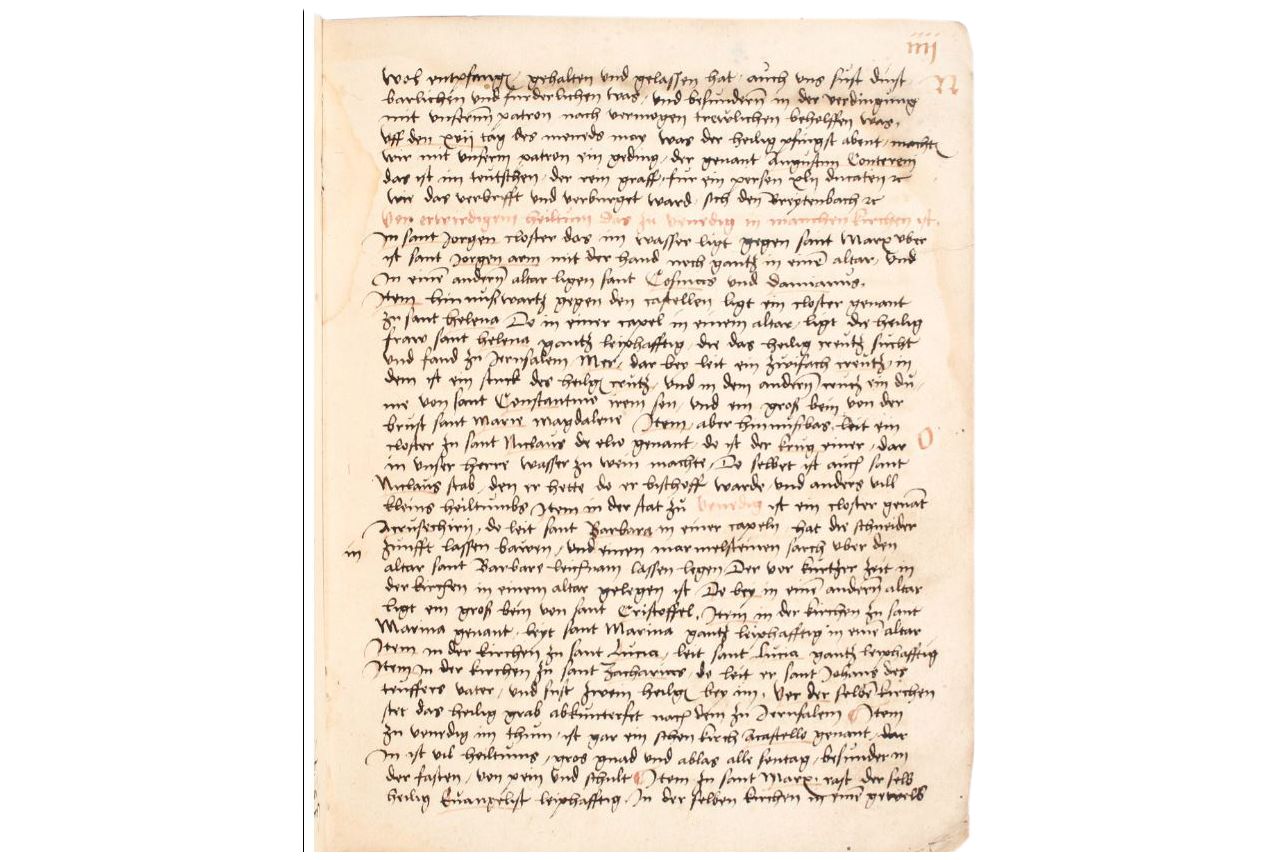 iiij
wol entpfangen, gehalten vnd gelassen hat, auch vns sust dinst
barlichen vnd furderlichen was, vnd besundern in der verdingung
mit vnserm patron nach vermogen trewlichen beholffen was.
vff den xvij tag des moneds may was der heilig pfingst abent, machte
wir mit vnserm patron ein geding, der genant Augustin Conterein
das ist im teutschen, der rein graff, fur ein person xlij ducaten ꝛc
wie das verbrifft vnd verburget ward, sich den Breytenbach ꝛc
Von erwirdigem heiltum das zu venedig in manchen kirchen ist.
In sant Jorgen closter das im wasser ligt gegen sant Marx vber
ist sant Jorgen arm mit der hand noch gantz in einē altar, vnd
in einē andern altar ligen sant Cosmas vnd damianus.
Item hin nußwartz gegen den castellen ligt ein closter genant
zu sant helena Do in einer capel in einem altar, ligt die heilig
fraw sant helena gantz leiphafftig, die das heilig creutz sucht
vnd fand zu Jerusalem Mer, dar bey leit ein zwifach creutz, in
dem ist ein stuck des heilgen creutz, vnd in dem andern creutz ein du
me von sant Constantino irem son, vnd ein groß bein von der
brust sant Marie Magdalene Item, aber hinnußbas leit ein
closter zu sant Niclaus de elio genant, do ist der krug einer, dar
in vnser herre wasser zu wein machte, Do selbet ist auch sant
Niclaus stab, den er hette do er bischoff warde, vnd anders vill
kleins heiltumbs, Item in der stat zu Venedig ist ein closter genāt
do leit sant Barbara in einer capeln, hat die schneider
in zunfft lassen bawen, vnd einen marmelsteinen sarch vber den
altar sant Barbare leichnam lassen legen, Der vor kurtzer zeit in
der kirchen in einem altar gelegen ist, Do bey in einē andern altar
ligt ein groß bein von sant Cristoffel, Item in der kirchen zu sant
Marina genant, leyt sant Marina gantz leiphafftig in einē altar
Item in der kirchen zu sant Lucia, leit sant Lucia gantz leiphafftig
Item in der kirchen zu sant Zacharias, do leit er sant Johans des
teuffers vater, vnd sust zwein heilgen bey im, Vor der selbē kirchen
stet das heilig grab abkunterfet nach dem zu Jerusalem Item
zu venedig im thum, ist gar ein schon kirch Acastello genant, dar
in ist vil heiltums, gros gnad vnd ablas alle sontag, besunder in
der fasten, von pein vnd schult Item zu sant Marx, rast der selb
heilig Euangelist leiphafftig, In der selben kirchen in einē gewelb